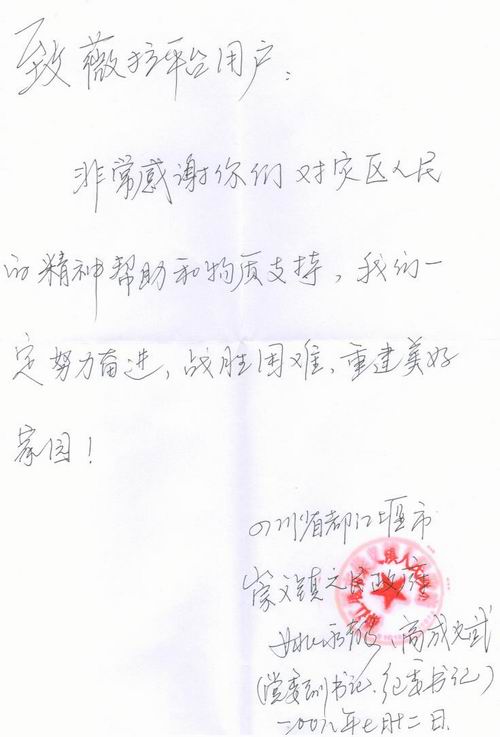 致薇拉平台用户:
非常感谢你们对灾区人民
的精神帮助和物质支持，我们一
定努力奋进，战胜困难，重建美好
家园！
四川省都江堰市
崇义镇人民政府
(党委副书记、纪委书记)
二00八年七月十二日